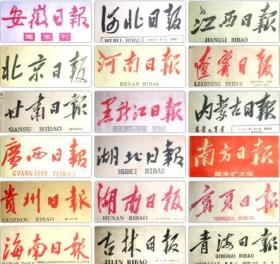 安徽日报
周末刊
河北日报
HEBEI RIBAO
江西日报
JIANGXI RIBAO
北京日报
河南日报
HENAN RIBAO
遼寧日報
LIAONING RIBAO
甘肃日报
GANSU RIBAO
黑龙江日报
内蒙古日报
廣西日報
GVANGJSIH YIZBAO
湖北日报
HUBEI RIBAO
南方日報
周末扩大版
貴州日报
GUIZHOU RIBAO
湖南日報
HUNAN RIBAO
寧夏日报
NINGXIA RIBAO
海南日报
吉林日报
JILIN RIBAO
青海日报
QINGHAI RIBAO